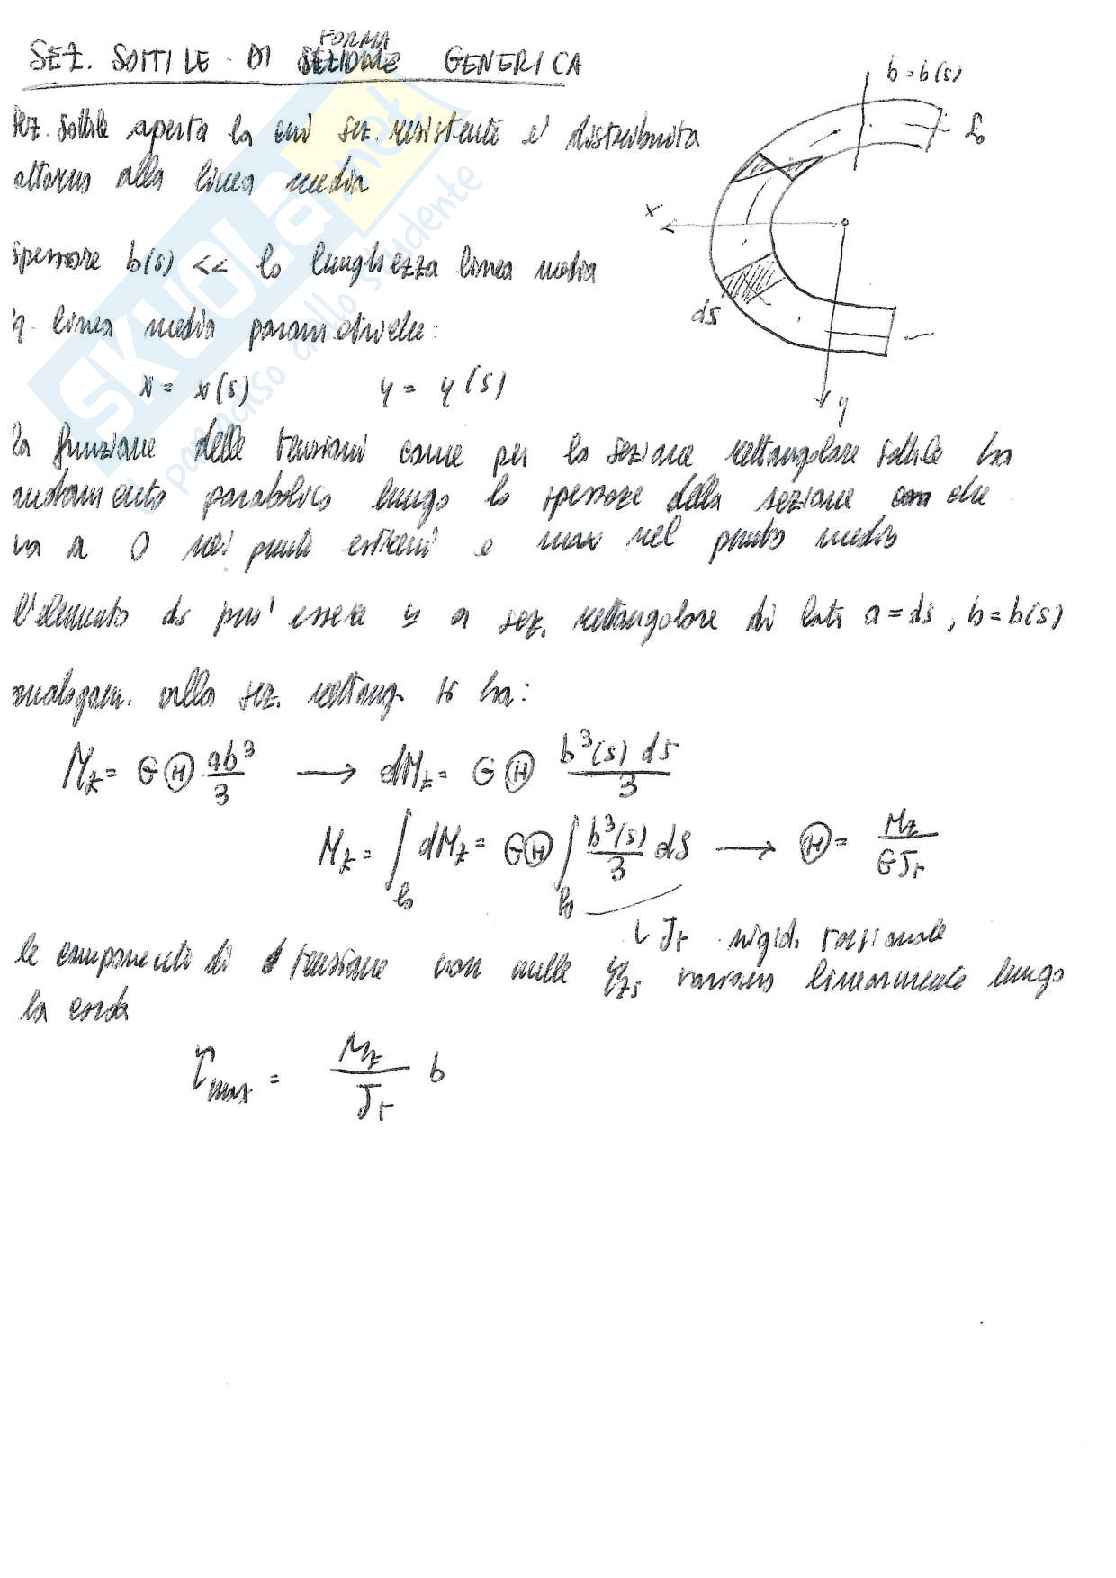 FORMA
SEZ. SOTTILE DI SEZIONE GENERICA
b = b(s)
sez. sottile aperta la cui sez. resistente e' distribuita
lo
attorno alla linea media
x
spessore b(s) << lo lunghezza linea media
ds
linea media parametriche:
x = x(s) y = y(s)
y
la funzione delle tensioni come per la sezione rettangolare sottile ha
andamento parabolico lungo lo spessore della sezione che
va a 0 nei punti estremi e max nel punto medio
l'elemento ds puo' essere ≃ a sez. rettangolare di lati a = ds, b = b(s)
analogam. alla sez. rettang. si ha:
Mz = G Θ ab³/3 → dMz = G Θ b³(s) ds/3
Mz = ∫lo dMz = G Θ ∫lo b³(s)/3 ds → Θ = Mz/GJt
↳ Jt rigid. torsionale
le componenti di tensione non nulle τzs variano linearmente lungo
la corda
τmax = Mz/Jt b
SKUOLA.net
paradiso dello studente